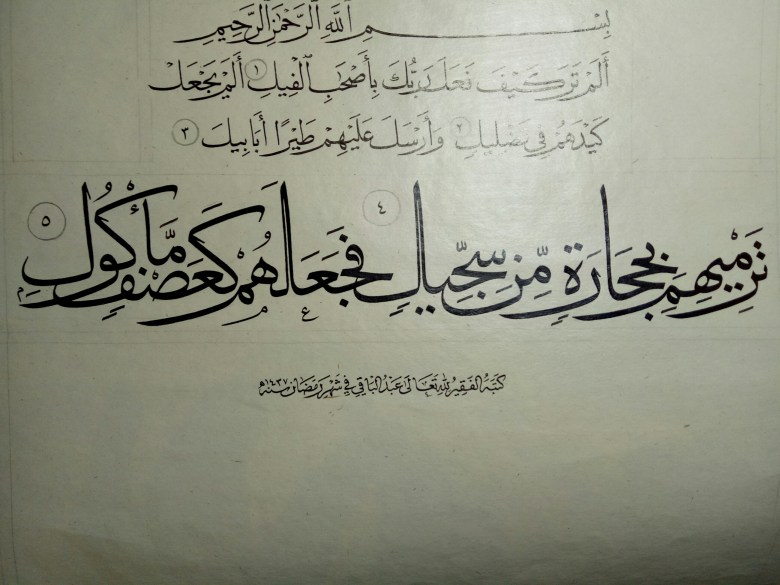 بِسْمِ ٱللَّهِ ٱلرَّحْمَٰنِ ٱلرَّحِيمِ
أَلَمْ تَرَ كَيْفَ فَعَلَ رَبُّكَ بِأَصْحَابِ ٱلْفِيلِ ١ أَلَمْ يَجْعَلْ
كَيْدَهُمْ فِي تَضْلِيلٍ ٢ وَأَرْسَلَ عَلَيْهِمْ طَيْرًا أَبَابِيلَ ٣
تَرْمِيهِم بِحِجَارَةٍ مِّن سِجِّيلٍ ٤ فَجَعَلَهُمْ كَعَصْفٍ مَّأْكُولٍ ٥
كتبه الفقير لله تعالى عبد الباقي في شهر رمضان سنة ١٤٣٧م